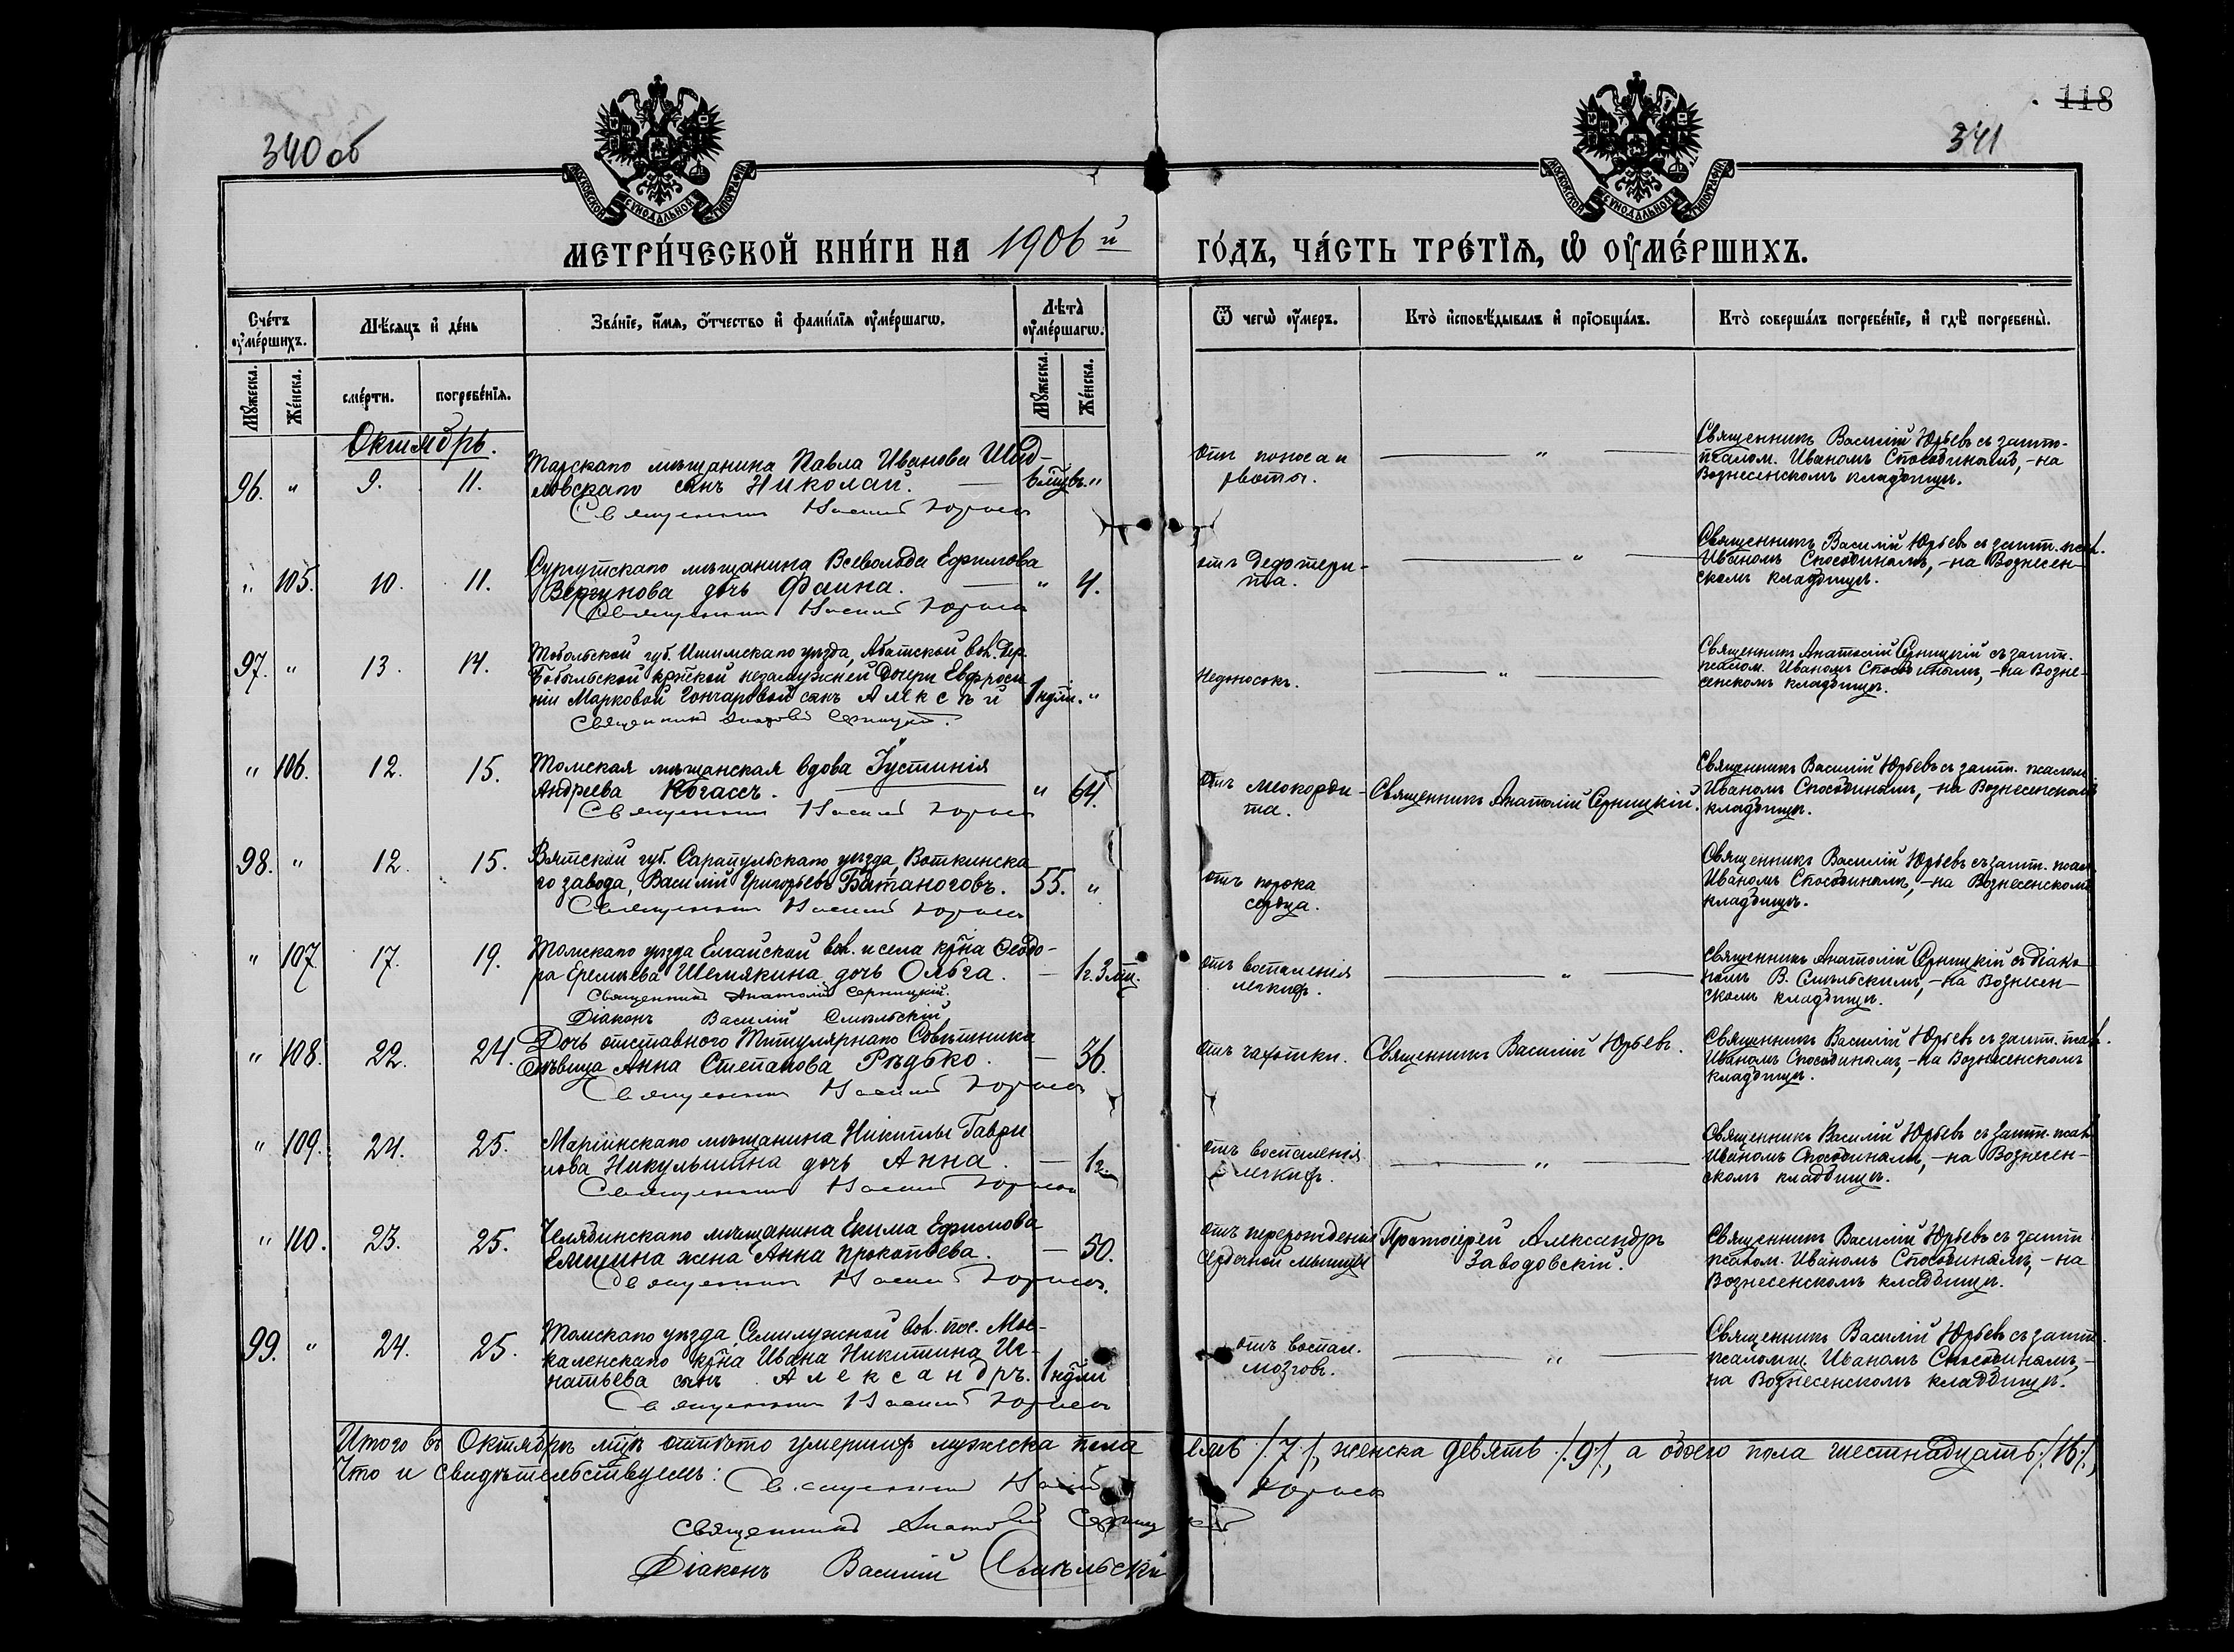 340 об
118
341
МОСКОВСКОЙ СѴНОДАЛЬНОЙ ТИПОГРАФІИ
МОСКОВСКОЙ СѴНОДАЛЬНОЙ ТИПОГРАФІИ
МЕТРИ́ЧЕСКОЙ КНИ́ГИ НА 1906 й ГО́ДЪ, ЧА́СТЬ ТРЕ́ТІѦ, Ѽ ОУ҆МЕ́РШИХЪ.
Сче́тъ оу҆ме́ршихъ.
Мѣ́сѧцъ и҆ де́нь
Зва́нїе, и҆́мѧ, ѻ҆́тчество и҆ фами́лїѧ оу҆ме́ршагѡ.
Лѣ̀та оу҆ме́ршагѡ.
Ѿ чегѡ̀ оу҆́меръ.
Кто̀ и҆сповѣ́дывалъ и҆ прїѡбща́лъ.
Кто̀ соверша́лъ погребе́нїе, и҆ гдѣ̀ погребены̀.
Мꙋ́жеска.
Же́нска.
сме́рти.
погребе́нїѧ.
Мꙋ́жеска.
Же́нска.
Октябрь.
96. " 9. 11.
Тарскаго мѣщанина Павла Иванова Шид-
ловскаго сынъ Николай. — 6 мцвъ. "
Священникъ Василій Юрьевъ
отъ поноса и
рвоты.
— " —
Священникъ Василій Юрьевъ съ заштт-
псалом. Иваномъ Способинымъ, - на
Вознесенскомъ кладбищѣ.
" 105. 10. 11.
Сургутскаго мѣщанина Всеволода Ефимова
Вергунова дочь Фаина. — " 4.
Священникъ Василій Юрьевъ
отъ дефтери-
та.
— " —
Священникъ Василій Юрьевъ съ зашт. псал.
Иваномъ Способинымъ, - на Вознесен-
скомъ кладбищѣ.
97. " 13. 14.
Тобольской губ. Ишимскаго уѣзда, Абатской вол. дер.
Бобыльской кр-кой незамужней дочери Евфроси
ніи Марковой Гончаровой сынъ Алексѣй 1 ндли. "
Священникъ Анатолій Серницкій.
Недоносокъ.
— " —
Священникъ Анатолій Серницкій съ зашт.
псалом. Иваномъ Способинымъ, - на Возне-
сенскомъ кладбищѣ.
" 106. 12. 15.
Томская мѣщанская вдова Іустинія
Андреева Югассъ. " 64.
Священникъ Василій Юрьевъ
отъ міокорди-
та.
Священникъ Анатолій Серницкій.
Священникъ Василій Юрьевъ съ зашт. псалом.
Иваномъ Способинымъ, - на Вознесенскомъ
кладбищѣ.
98. " 12. 15.
Вятской губ. Сарапульскаго уѣзда, Воткинска
го завода, Василій Григорьевъ Батаноговъ. 55. "
Священникъ Василій Юрьевъ
отъ порока
сердца.
Священникъ Василій Юрьевъ съ зашт. псал.
Иваномъ Способинымъ, - на Вознесенскомъ
кладбищѣ.
" 107. 17. 19.
Томскаго уѣзда Елгайской вол. и села кр-на Ѳеодо-
ра Еремѣева Шемякина дочь Ольга. — 1 г. 3 мц.
Священникъ Анатолій Серницкій.
Діаконъ Василій Смѣльскій
отъ воспаленія
легкихъ.
— " —
Священникъ Анатолій Серницкій съ діако
номъ В. Смѣльскимъ, - на Вознесен-
скомъ кладбищѣ.
" 108. 22. 24.
Дочь отставного Титулярнаго Совѣтника
дѣвица Анна Степанова Рѣдько. — 36.
Священникъ Василій Юрьевъ
отъ чахотки.
Священникъ Василій Юрьевъ.
Священникъ Василій Юрьевъ съ зашт. псал.
Иваномъ Способинымъ, - на Вознесенскомъ
кладбищѣ.
" 109. 24. 25.
Маріинскаго мѣщанина Никиты Гаври
лова Никульшина дочь Анна. — 1 г.
Священникъ Василій Юрьевъ
отъ воспаленія
легкихъ.
— " —
Священникъ Василій Юрьевъ съ зашт. псал.
Иваномъ Способинымъ, - на Вознесен-
скомъ кладбищѣ.
" 110. 23. 25.
Челябинскаго мѣщанина Екима Ефимова
Емшина жена Анна Прокопьева. — 50.
Священникъ Василій Юрьевъ.
отъ перерожденія
сердечной мышцы
Протоіерей Александръ
Заводовскій.
Священникъ Василій Юрьевъ съ зашт.
псалом. Иваномъ Способинымъ, - на
Вознесенскомъ кладбищѣ.
99. " 24. 25.
Томскаго уѣзда, Семилужной вол. пос. Мос-
каленскаго кр-на Ивана Никитина Иг-
натьева сынъ Александръ. 1 нд̃ли
Священникъ Василій Юрьевъ
отъ воспал.
мозговъ.
— " —
Священникъ Василій Юрьевъ съ зашт.
псаломщ. Иваномъ Способинымъ, -
на Вознесенскомъ кладбищѣ.
Итого въ Октябрѣ мцѣ отпѣто умершихъ мужеска пола семь /.7./, женска девять /.9./, а обоего пола шестнадцать /.16./,
Что и свидѣтельствуемъ: Священникъ Василій Юрьевъ
Священникъ Анатолій Серницкій
Діаконъ Василій Смѣльскій